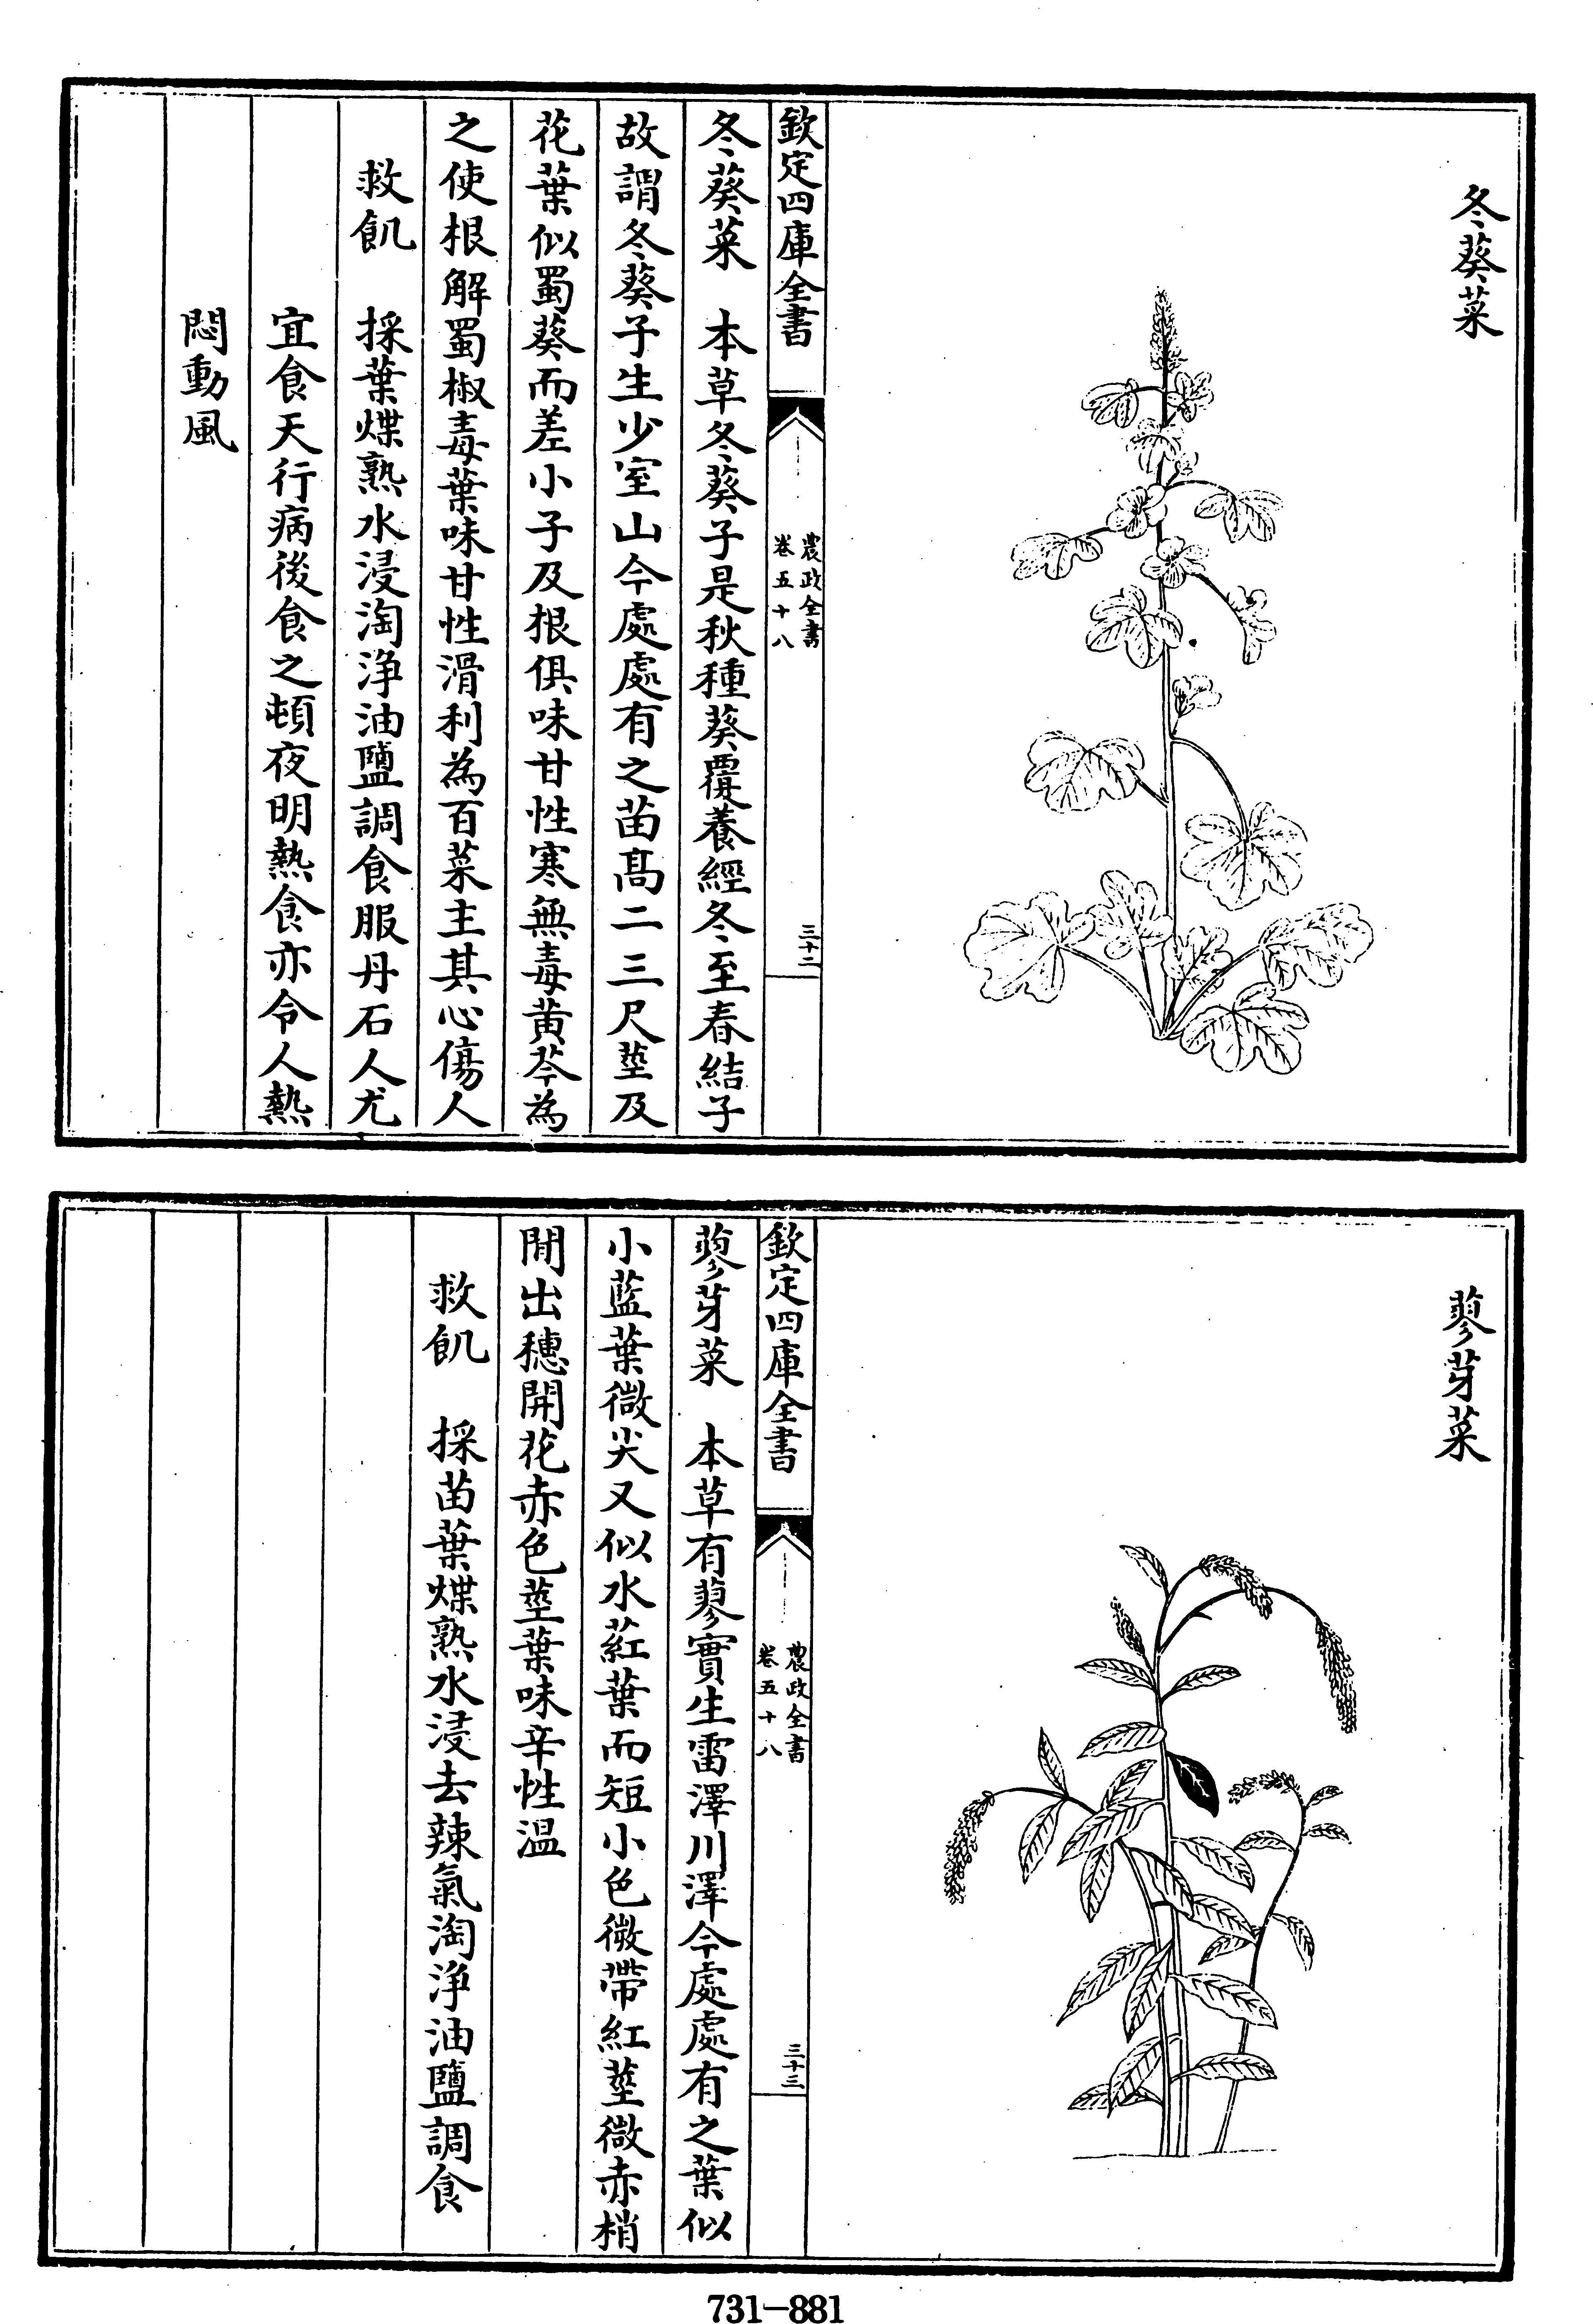 冬葵菜
欽定四庫全書
農政全書
卷五十八
三十二
冬葵菜　本草冬葵子是秋種葵覆養經冬至春結子
故謂冬葵子生少室山今處處有之苗髙二三尺莖及
花葉似蜀葵而差小子及根俱味甘性寒無毒黄芩為
之使根解蜀椒毒葉味甘性滑利為百菜主其心傷人
救飢　採葉煠熟水浸淘浄油鹽調食服丹石人尤
宜食天行病後食之頓夜明熱食亦令人熱
悶動風
蓼芽菜
欽定四庫全書
農政全書
卷五十八
三十三
蓼芽菜　本草有蓼實生雷澤川澤今處處有之葉似
小藍葉微尖又似水葒葉而短小色微帶紅莖微赤梢
間出穗開花赤色莖葉味辛性温
救飢　採苗葉煠熟水浸去辣氣淘浄油鹽調食
731-881